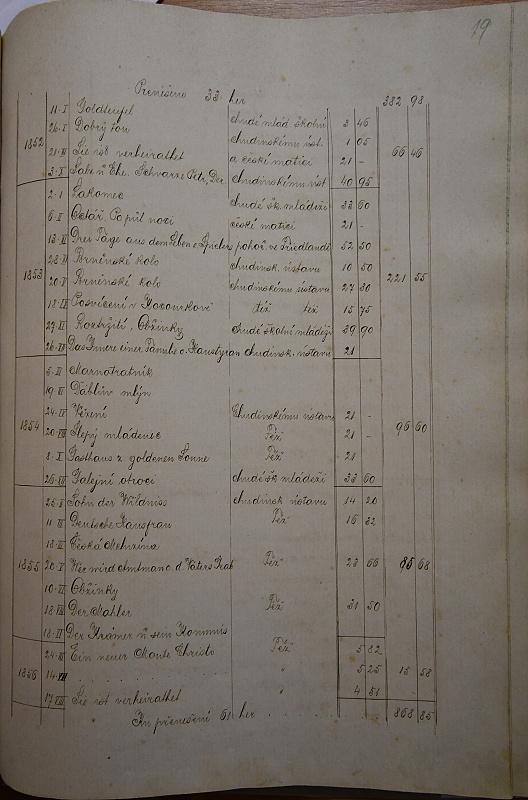 19
Přenešeno 33 her 382 98
11·I Goldteufel chudé mlád. školní 3 46
1852 26·I Dobrý tou chudinskému úst. 1 05
21·IV Sie ist verheirathet a české matici 21 - 66 46
3·X Schwarze Petr, Der chudinskému úst. 40 95
2·I Lakomec chudé šk. mládeži 33 60
6·II Oclář, Po půl noci české matici 21 -
13·II Drei Tage aus dem Leben e. Spielers pohoř. ve Friedlandě 52 50
1853 28·II Brněnské kolo chudinsk. ústavu 10 50
20·V Brněnské kolo chudinskému ústavu 27 30 221 55
18·IX Posvícení v Kocourkově též též 15 75
27·XI Roztržití, Obžinky chudé školní mládeži 39 90
26·XII Das Innere einer Familie o. Haustyran chudinsk. ústavu 21
5·II Marnotratník
19·II Ďáblův mlýn
24·IV Vězení Chudinskému ústavu 21 -
1854 20·VIII Slepý mládenec Též 21 - 96 60
8·X Gasthaus z goldenen Sonne Též 21
26·XII Galejní otroci chudé šk mládeži 33 60
25·I Sohn der Wildniss chudinsk ústavu 14 20
11·II Deutsche Hausfrau Též 16 32
18·II Česká Mehuzina
1855 20·V Wer wird Amtmann o. d. Vaters Grab Též 23 66 85 68
10·VI Obžinky
18·VIII Der Mahler Též 31 50
18·II Der Krämer u sein Kommis
24·III Ein neuer Monte Christo Též 5 82
1856 14·VIII . . . . . . . . " 5 25 15 58
17·VIII Sie ist verheirathet " 4 51
Ku přenešení 61 her . . . . . 868 85